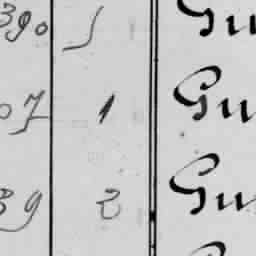 390 Gu
07 1 Gu
39 2 Gu